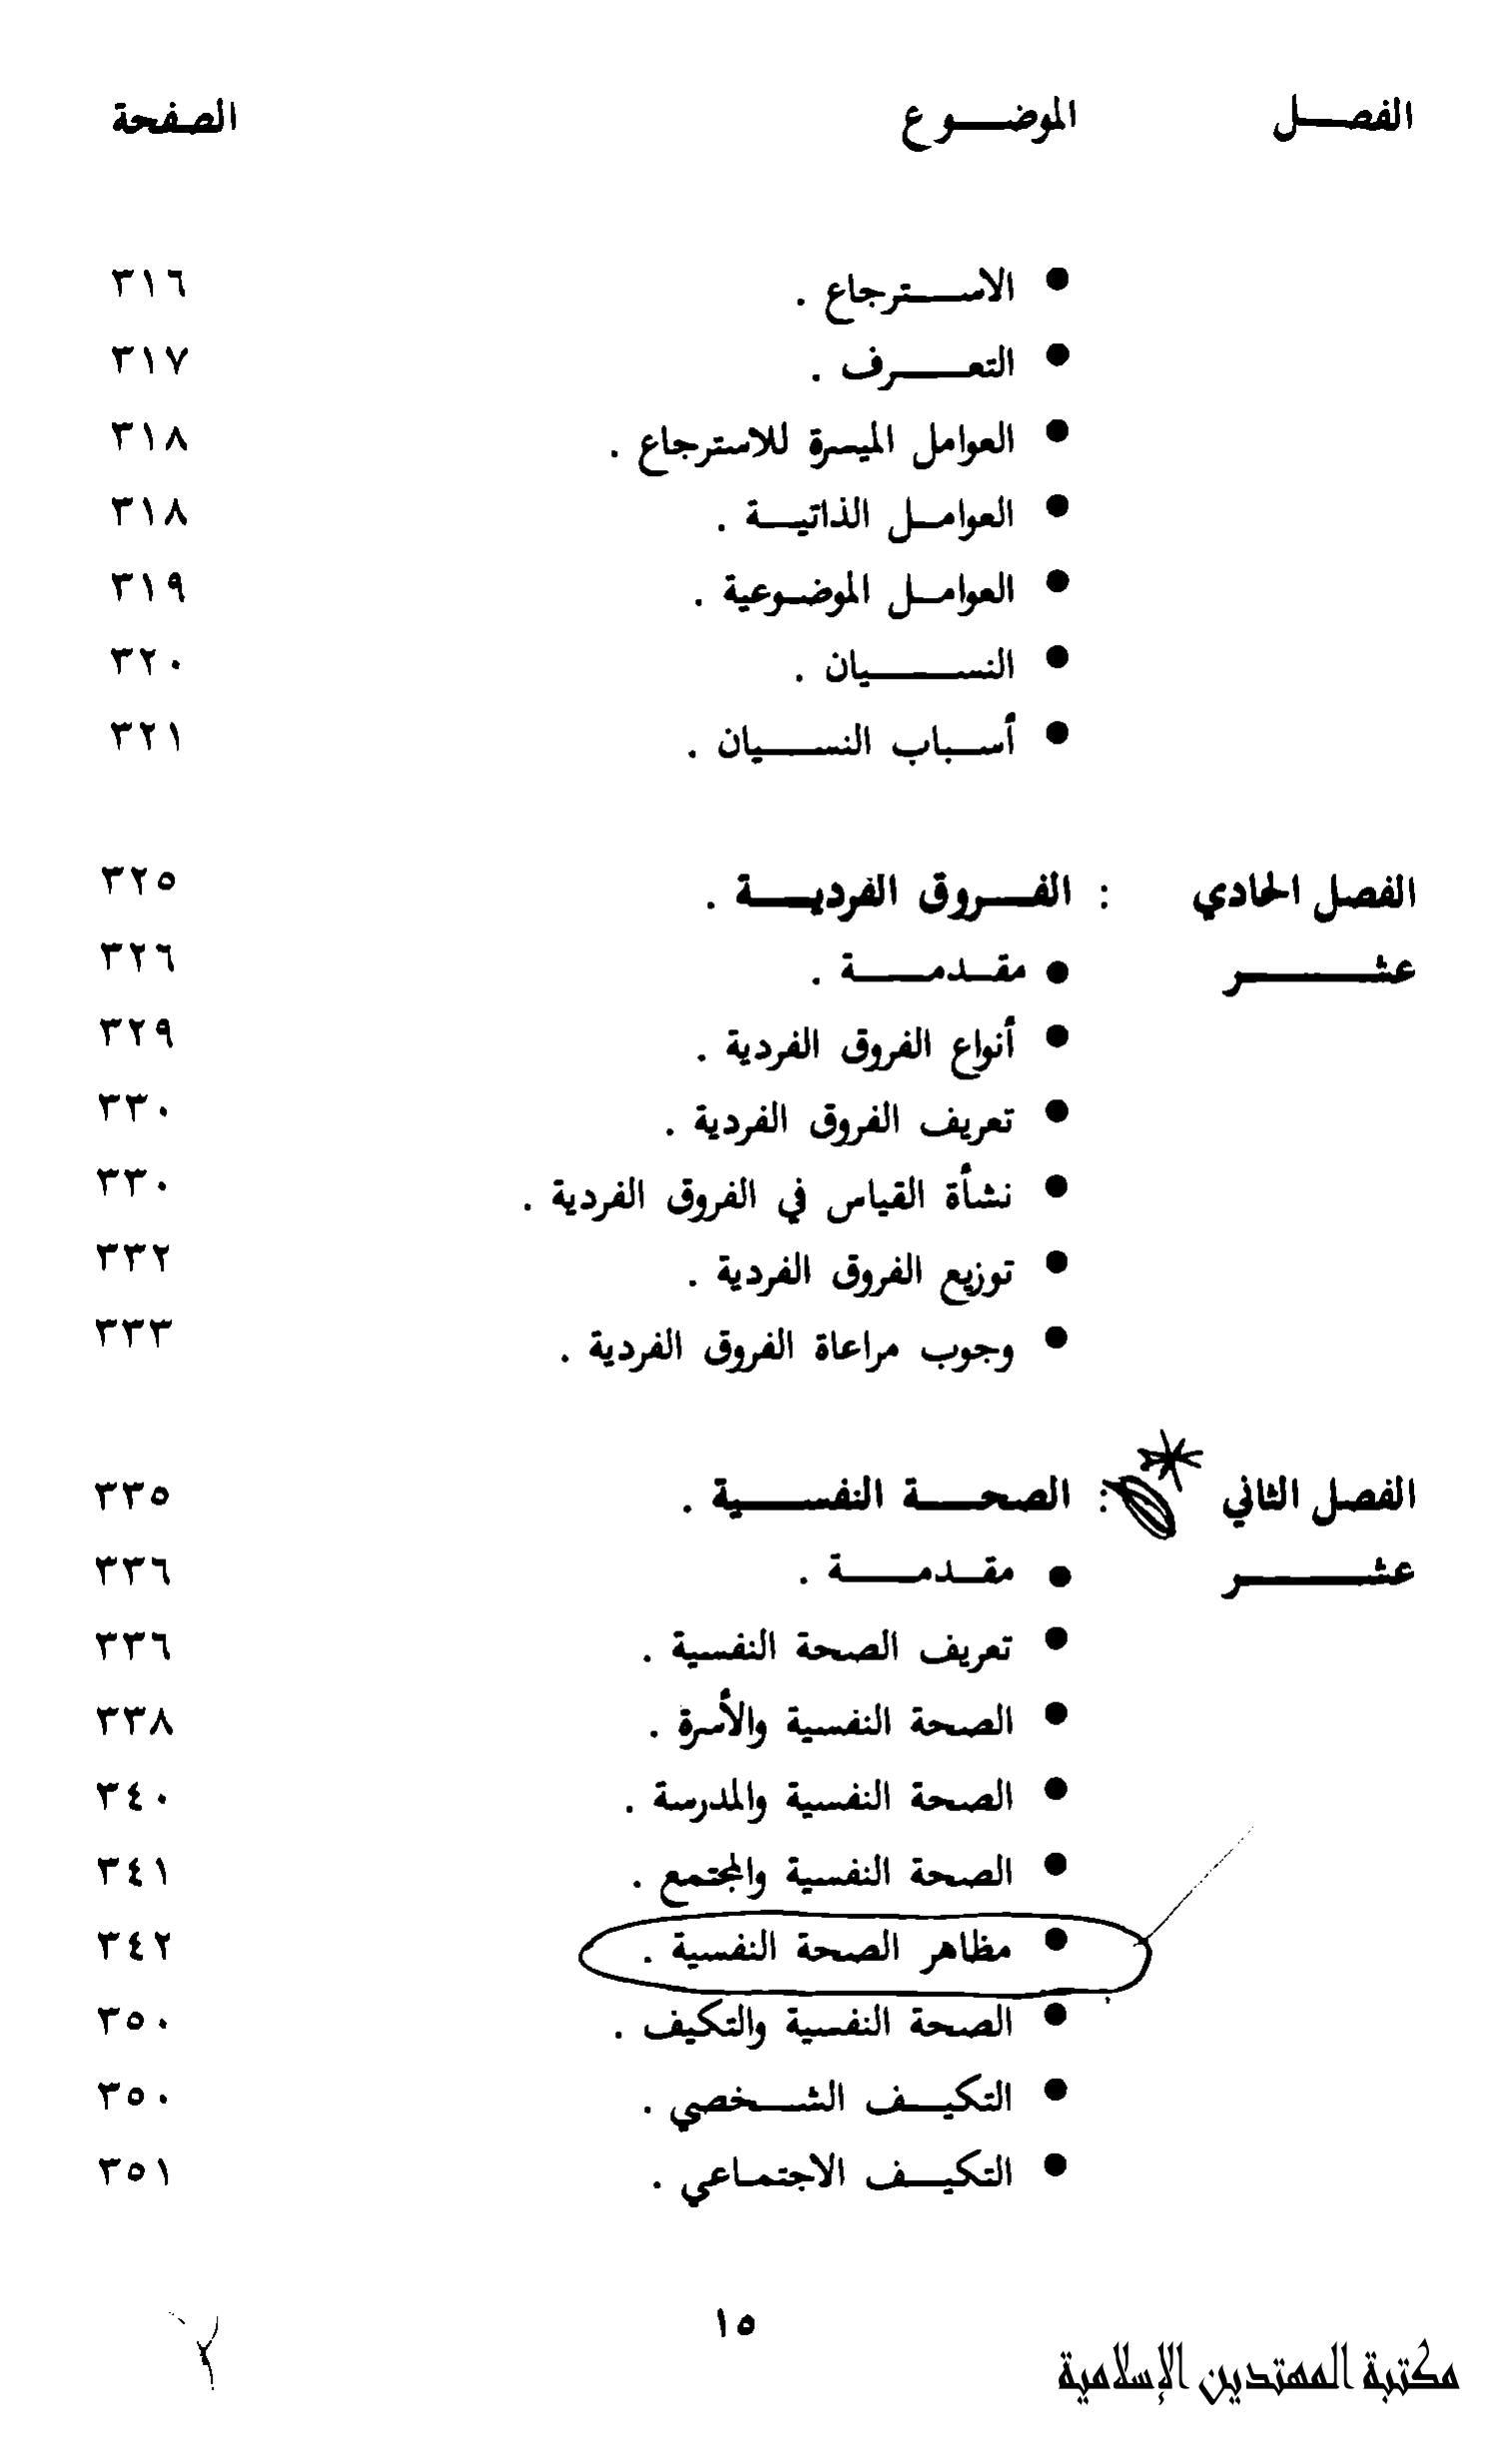 الفصل الموضوع الصفحة
• الاسترجاع . ٣١٦
• التعرف . ٣١٧
• العوامل الميسرة للاسترجاع . ٣١٨
• العوامل الذاتية . ٣١٨
• العوامل الموضوعية . ٣١٩
• النسيان . ٣٢٠
• أسباب النسيان . ٣٢١
الفصل الحادي : الفروق الفردية . ٣٢٥
عشر • مقدمة . ٣٢٦
• أنواع الفروق الفردية . ٣٢٩
• تعريف الفروق الفردية . ٣٣٠
• نشأة القياس في الفروق الفردية . ٣٣٠
• توزيع الفروق الفردية . ٣٣٢
• وجوب مراعاة الفروق الفردية . ٣٣٣
الفصل الثاني : الصحة النفسية . ٣٣٥
عشر • مقدمة . ٣٣٦
• تعريف الصحة النفسية . ٣٣٦
• الصحة النفسية والأسرة . ٣٣٨
• الصحة النفسية والمدرسة . ٣٤٠
• الصحة النفسية والمجتمع . ٣٤١
• مظاهر الصحة النفسية . ٣٤٢
• الصحة النفسية والتكيف . ٣٥٠
• التكيف الشخصي . ٣٥٠
• التكيف الاجتماعي . ٣٥١
١٥
مكتبة المهتدين الإسلامية